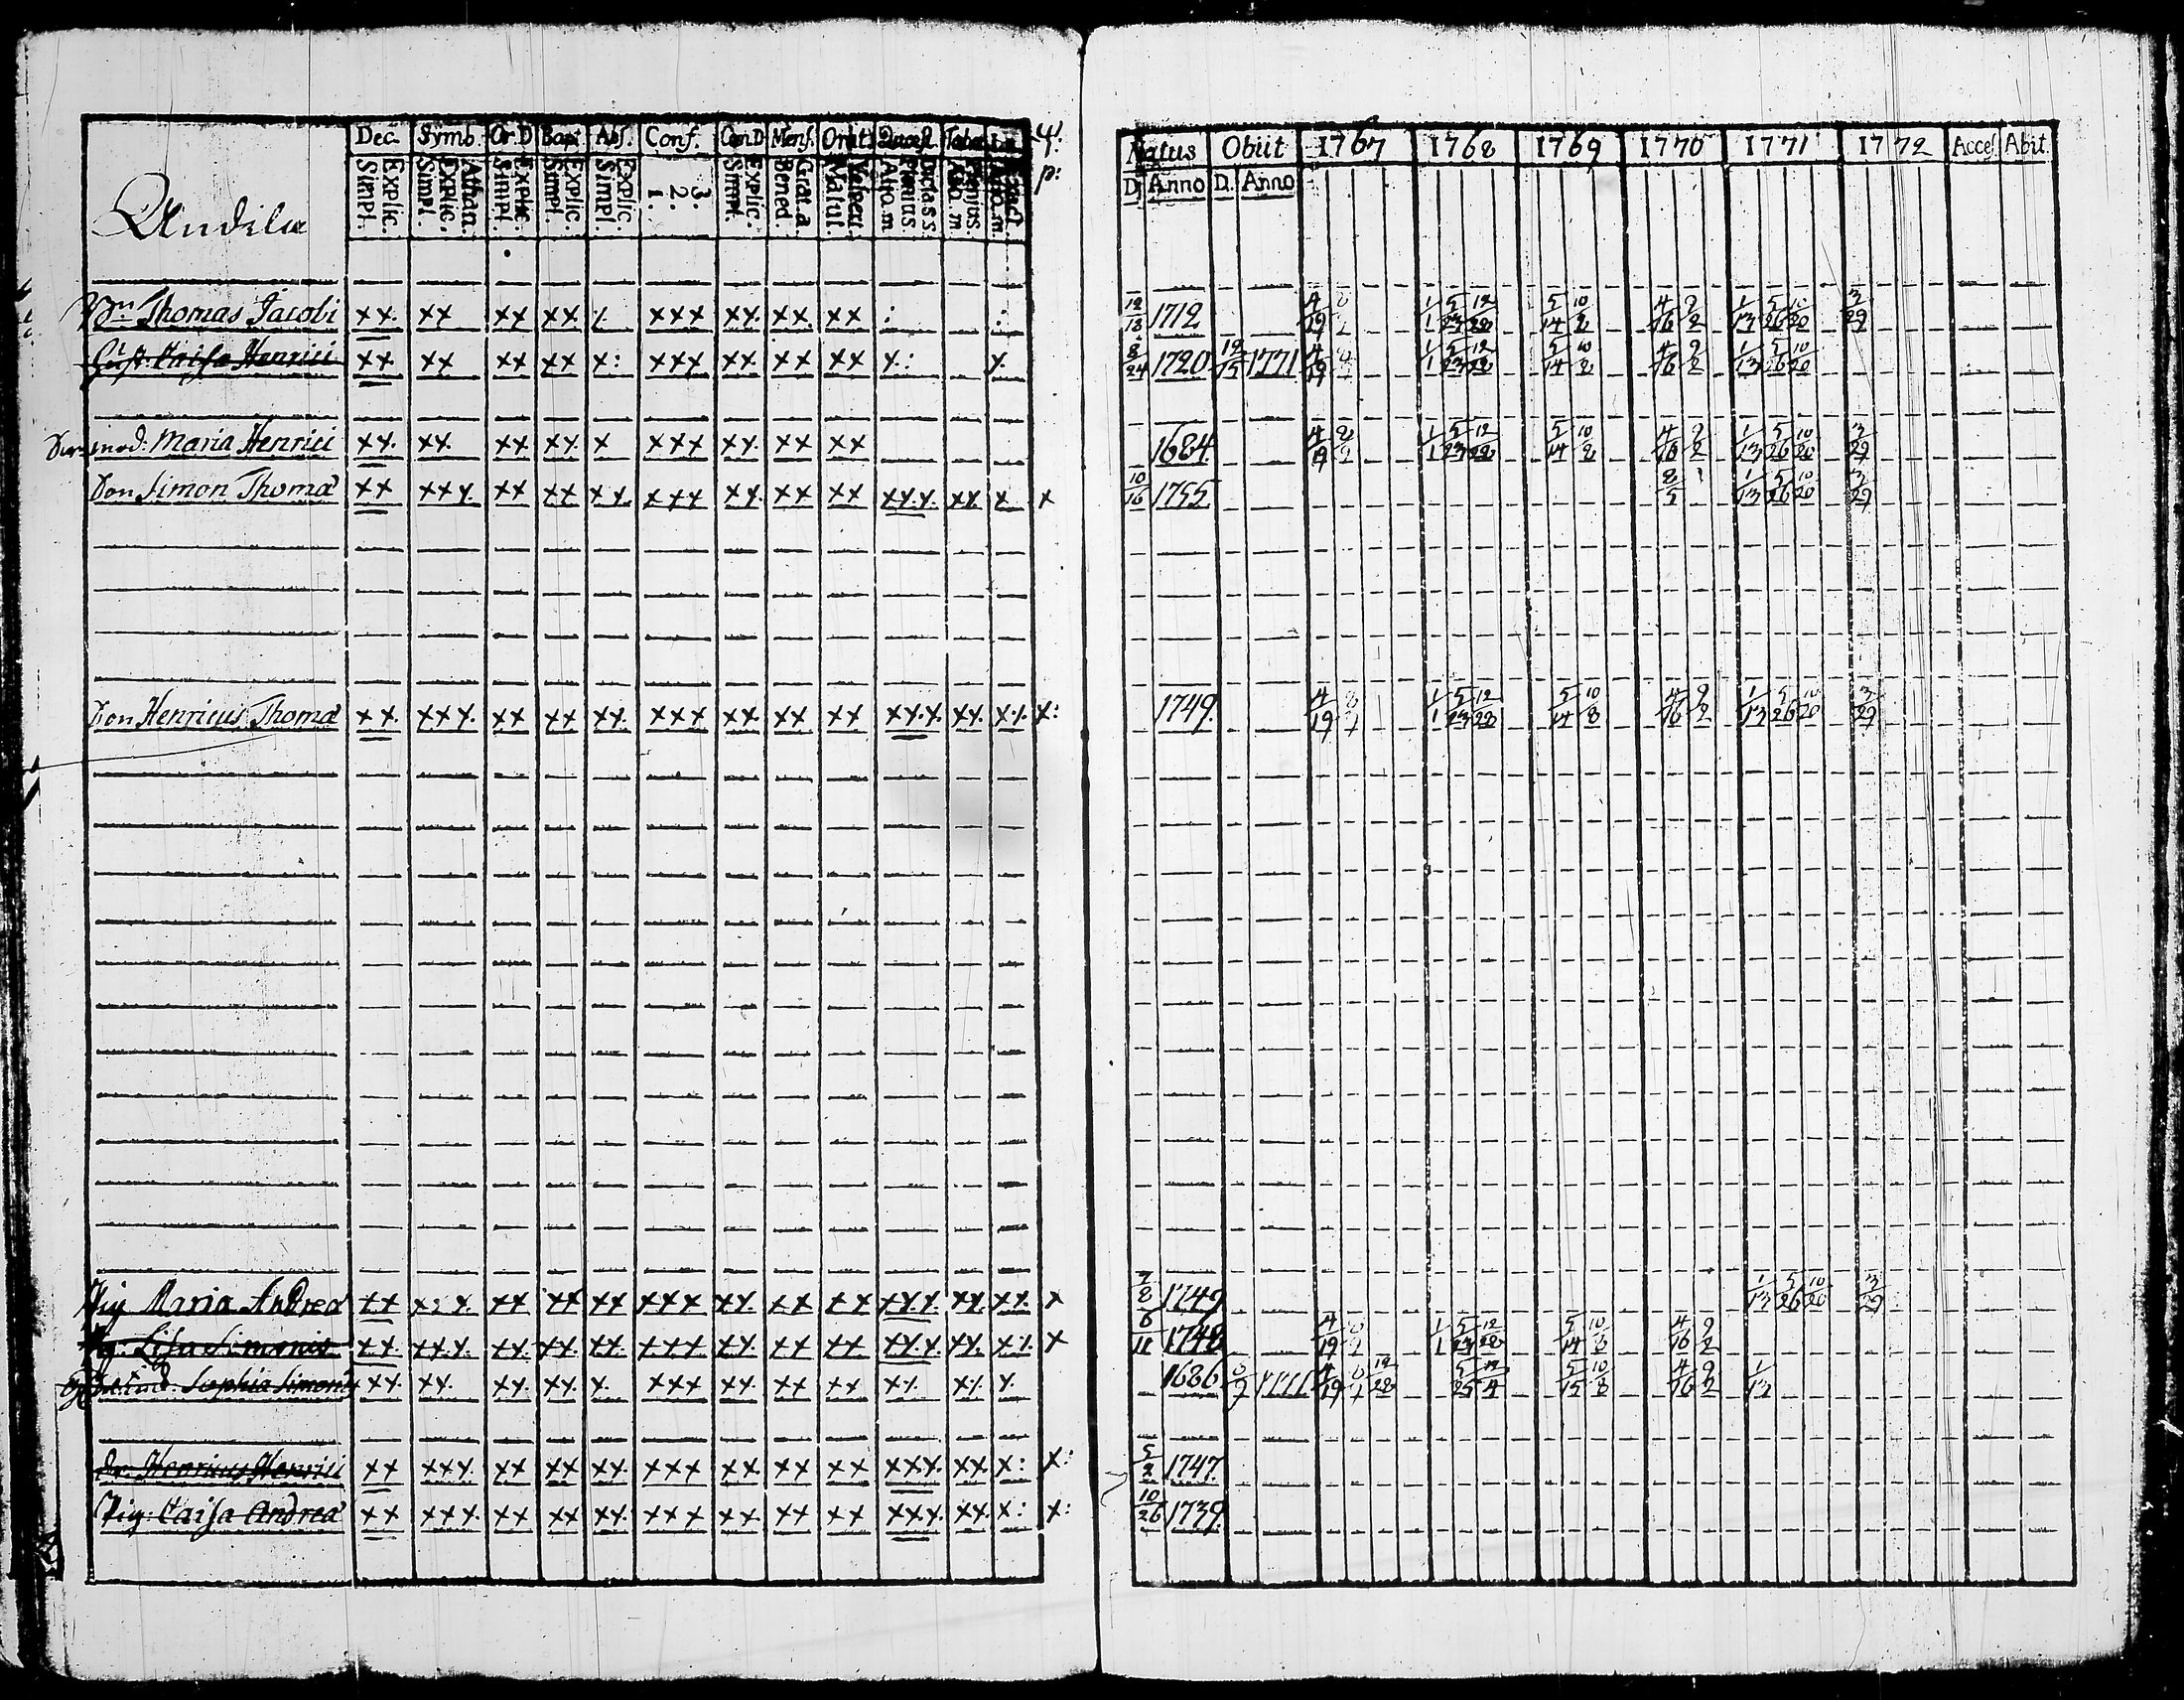 Dec. Symb. Or.D Bapt. Abs. Conf. Cœn.D Mens. Orat. Quæst. Tabul. 4:
Natus Obiit 1767 1768 1769 1770 1771 1772 Acces. Abit.
Simpl. Explic. Simpl. Explic. Athan. Simpl. Explic. Simpl. Explic. Simpl. Explic. 1. 2. 3. Simpl. Explic. Bened. Grat.a Matut. Vesper. Alio.m Plenius Dicta S.S. Alio m Plenius. p:
D. Anno D. Anno
Thomas Jacobi xx. xx xx xx. xxx xx. xx. xx 12/13 1712 4/19 1/1 5/23 12/28 5/14 10/8 4/16 9/2 1/13 5/26 10/20 3/29
Caisa Henrici xx. xx xx xx x: xxx xx xx xx x: x. 8/24 1720 12/15 1771 4/19 1/1 5/23 12/28 5/14 10/8 4/16 9/2 1/13 5/26 10/20
mod: Maria Henrici xx. xx xx xx. x xxx xx. xx xx 1684 4/19 8/2 1/1 5/23 12/28 5/14 10/8 4/16 9/2 1/13 5/26 10/20 3/29
Don Simon Thomæ xx xxx. xx xx xx. xxx xx. xx xx xx.x. xx. x x 10/16 1755 8/5 1/13 5/26 10/20 3/29
Don Henricus Thomæ xx. xxx. xx xx xx. xxx xx. xx xx xx.x. xx. x.x. x: 1749 4/19 1/1 5/23 12/28 5/14 10/8 4/16 9/2 1/13 5/26 10/20 3/29
Pig Maria Andreæ xx x:x. xx xx xx xxx xx. xx xx xxx. xx. xx. x 7/8 1749 1/13 5/26 10/20 3/29
Lisa Simonis xx. xx.x. xx. xx. xx. xxx xx. xx xx xx.x xx. x:. x 6/11 1748 4/19 1/1 5/23 12/28 5/14 10/8 4/16 9/2
Sophia Simonis xx. xx. xx. xx. x. xxx xx. xx xx x:. x:. x. 1686 4/19 12/28 5/25 12/4 5/15 10/8 4/16 9/2 1/13
Dr. Henricus Henrici xx xxx. xx xx xx. xxx xx xx xx xxx. xx x: x: 5/2 1747
Pig: Caisa Andreæ xx xxx. xx xx xx. xxx xx. xx xx xxx. xx. x: x: 10/26 1739